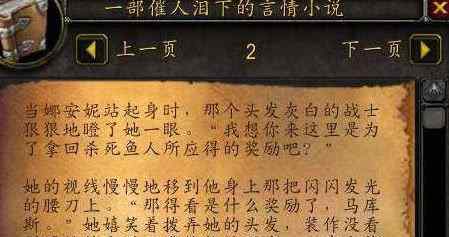 一部催人泪下的言情小说
上一页 2 下一页
当娜安妮站起身时，那个头发灰白的战士
狠狠地瞪了她一眼。“我想你来这里是为
了拿回杀死鱼人所应得的奖励吧？”
她的视线慢慢地移到他身上那把闪闪发光
的腰刀上。“那得看是什么奖励了，马库
斯。”她嬉笑着拨弄她的头发，装作没看